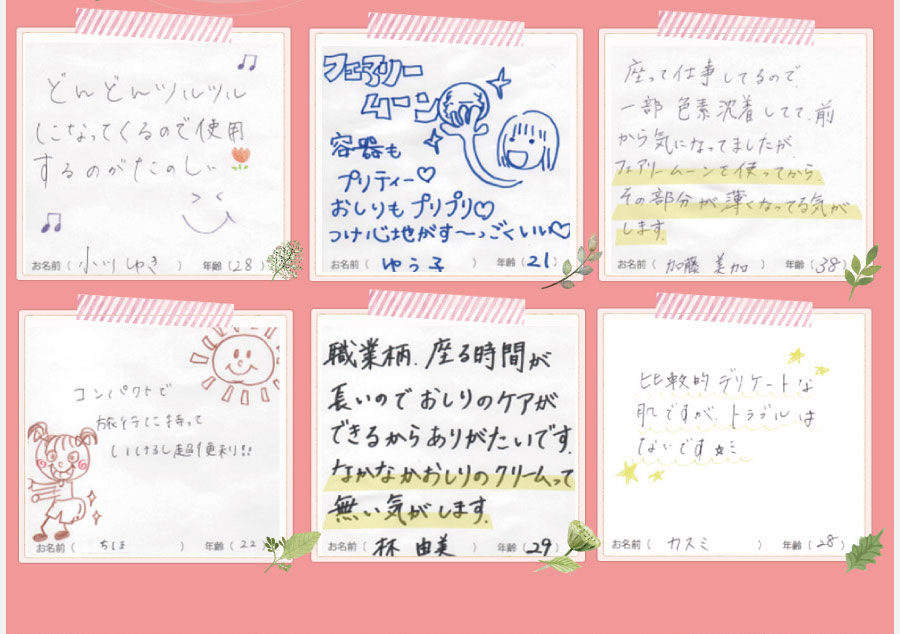 どんどんツルツル
になってくるので使用
するのがたのしい
お名前(小川ゆき) 年齢(28)
フェアリー
ムーン
容器も
プリティー♡
おしりもプリプリ♡
つけ心地がす〜っごくいい♡
お名前(ゆう子) 年齢(21)
座って仕事してるので、
一部 色素沈着してて、前
から気になってましたが、
フェアリームーンを使ってから
その部分が薄くなってる気が
します。
お名前(加藤 美加) 年齢(38)
コンパクトで
旅行に持って
いけるし超便利!!
お名前(ちほ) 年齢(22)
職業柄、座る時間が
長いのでおしりのケアが
できるからありがたいです。
なかなかおしりのクリームって
無い気がします。
お名前(林 由美) 年齢(29)
比較的デリケートな
肌ですが、トラブルは
ないです
お名前(カスミ) 年齢(28)